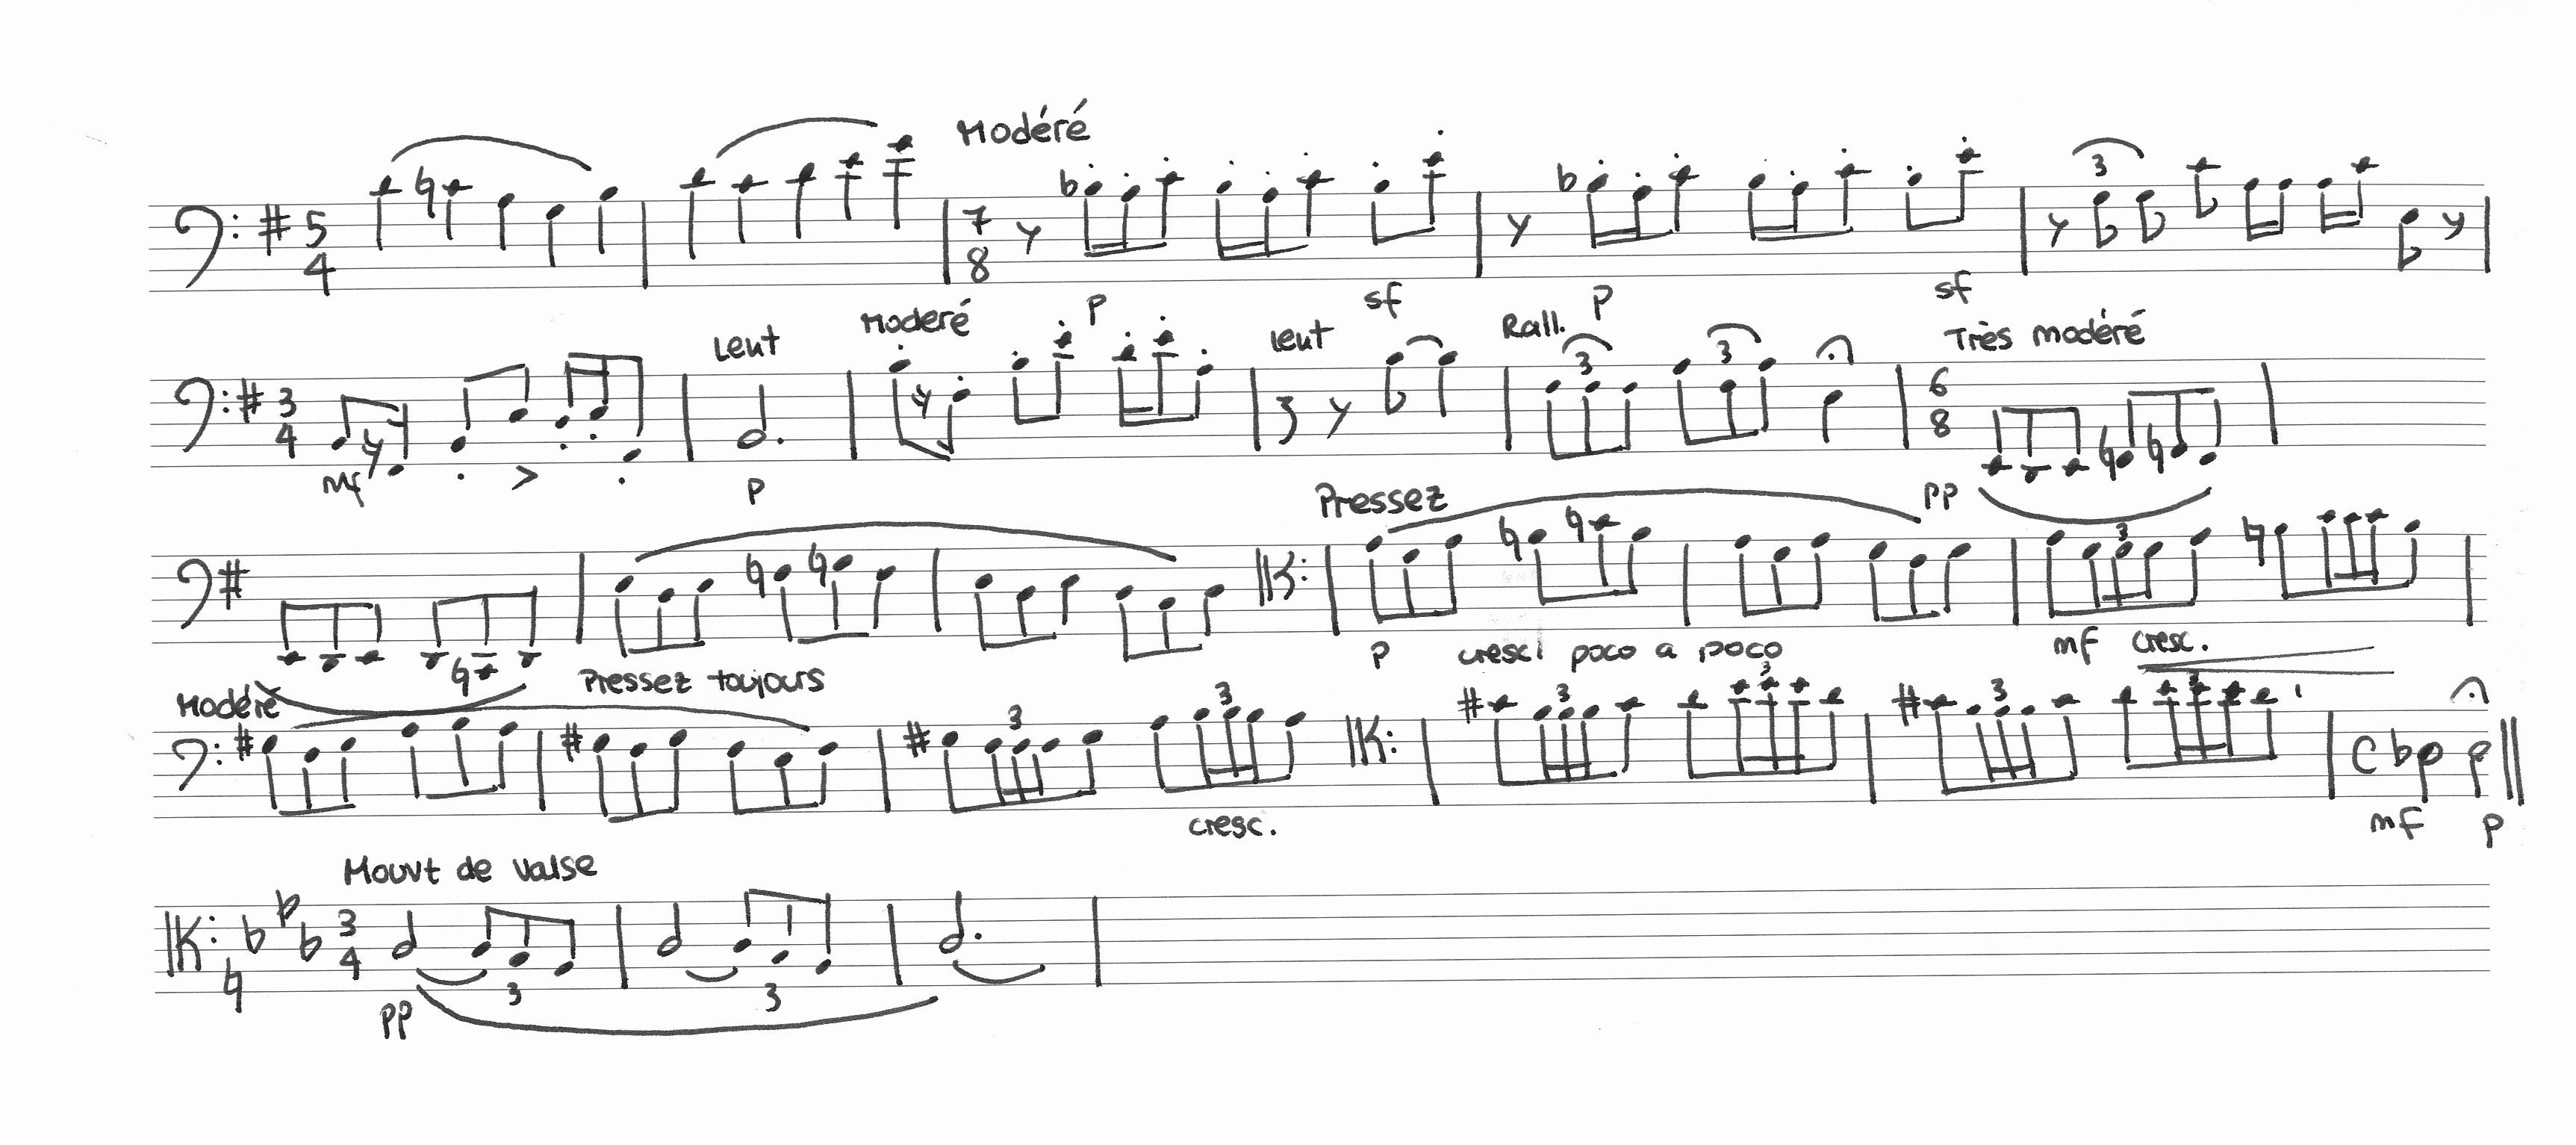 Modéré
5 4 7 8 3
p sf p sf
Lent Moderé lent Rall. Très modéré
3 4 3 3 6 8
mf p pp
Pressez
3
p cresc. poco a poco mf cresc.
Modéré Pressez toujours
3 3 3 3 3 3
C
cresc. mf p
Mouvt de valse
3 4
3 3
pp